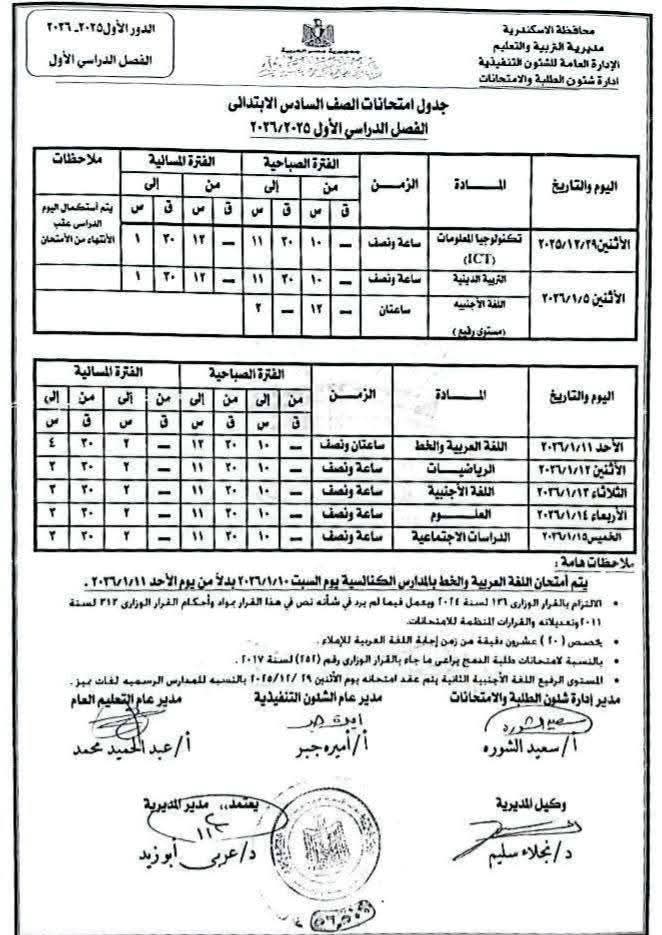 محافظة الاسكندرية
مديرية التربية والتعليم
الإدارة العامة للشئون التنفيذية
ادارة شئون الطلبة والامتحانات
جمهورية مصر العربية
الدور الأول ٢٠٢٥-٢٠٢٦
الفصل الدراسي الأول
جدول امتحانات الصف السادس الابتدائى
الفصل الدراسي الأول ٢٠٢٦/٢٠٢٥
اليوم والتاريخ المــادة الزمــن الفترة الصباحية الفترة المسائية ملاحظات
من إلى من إلى
ق س ق س ق س ق س
الأثنين ٢٠٢٥/١٢/٢٩ تكنولوجيا المعلومات (ICT) ساعة ونصف — ١٠ ٣٠ ١١ — ١٢ ٣٠ ١ يتم أستكمال اليوم الدراسى عقب الأنتهاء من الأمتحان
الأثنين ٢٠٢٦/١/٥ التربية الدينية ساعة ونصف — ١٠ ٣٠ ١١ — ١٢ ٣٠ ١
اللغة الأجنبيه (مستوى رفيع) ساعتان — ١٢ — ٢
اليوم والتاريخ المــادة الزمــن الفترة الصباحية الفترة المسائية
من إلى من إلى من إلى
ق س ق س ق س ق س
الأحد ٢٠٢٦/١/١١ اللغة العربية والخط ساعتان ونصف — ١٠ ٣٠ ١٢ — ٢ ٣٠ ٤
الأثنين ٢٠٢٦/١/١٢ الرياضيــات ساعة ونصف — ١٠ ٣٠ ١١ — ٢ ٣٠ ٣
الثلاثاء ٢٠٢٦/١/١٣ اللغة الأجنبية ساعة ونصف — ١٠ ٣٠ ١١ — ٢ ٣٠ ٣
الأربعاء ٢٠٢٦/١/١٤ العلــوم ساعة ونصف — ١٠ ٣٠ ١١ — ٢ ٣٠ ٣
الخميس ٢٠٢٦/١/١٥ الدراسات الاجتماعية ساعة ونصف — ١٠ ٣٠ ١١ — ٢ ٣٠ ٣
ملاحظات هامة :
يتم أمتحان اللغة العربية والخط بالمدارس الكنائسية يوم السبت ٢٠٢٦/١/١٠ بدلاً من يوم الأحد ٢٠٢٦/١/١١ .
• الالتزام بالقرار الوزارى ١٣٦ لسنة ٢٠٢٤ ويعمل فيما لم يرد في شأنه نص في هذا القرار بمواد وأحكام القرار الوزارى ٣١٣ لسنة
٢٠١١ وتعديلاته والقرارات المنظمة للامتحانات.
• يخصص (٢٠) عشرون دقيقة من زمن إجابة اللغة العربية للإملاء .
• بالنسبة لامتحانات طلبة الدمج يراعى ما جاء بالقرار الوزارى رقم (٢٥٢) لسنة ٢٠١٧ .
• المستوى الرفيع اللغة الأجنبية الثانية يتم عقد امتحانه يوم الأثنين ٢٩ /٢٠٢٥/١٢ بالنسبه للمدارس الرسميه لغات متميز .
مدير إدارة شئون الطلبة والامتحانات مدير عام الشئون التنفيذية مدير عام التعليم العام
أ/ سعيد الشوره أ/ أميره جبر أ/ عبد الحميد محمد
وكيل المديرية يعتمد،، مدير المديرية
د/ نجلاء سليم د/ عربى أبو زيد